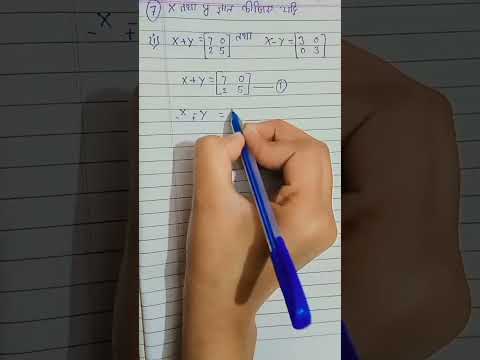 ⑦ X तथा y ज्ञात कीजिए यदि
(i) X+Y = [7 0 2 5] तथा X-Y = [3 0 0 3]
X+Y = [7 0 2 5] —— ①
-X ∓ Y =